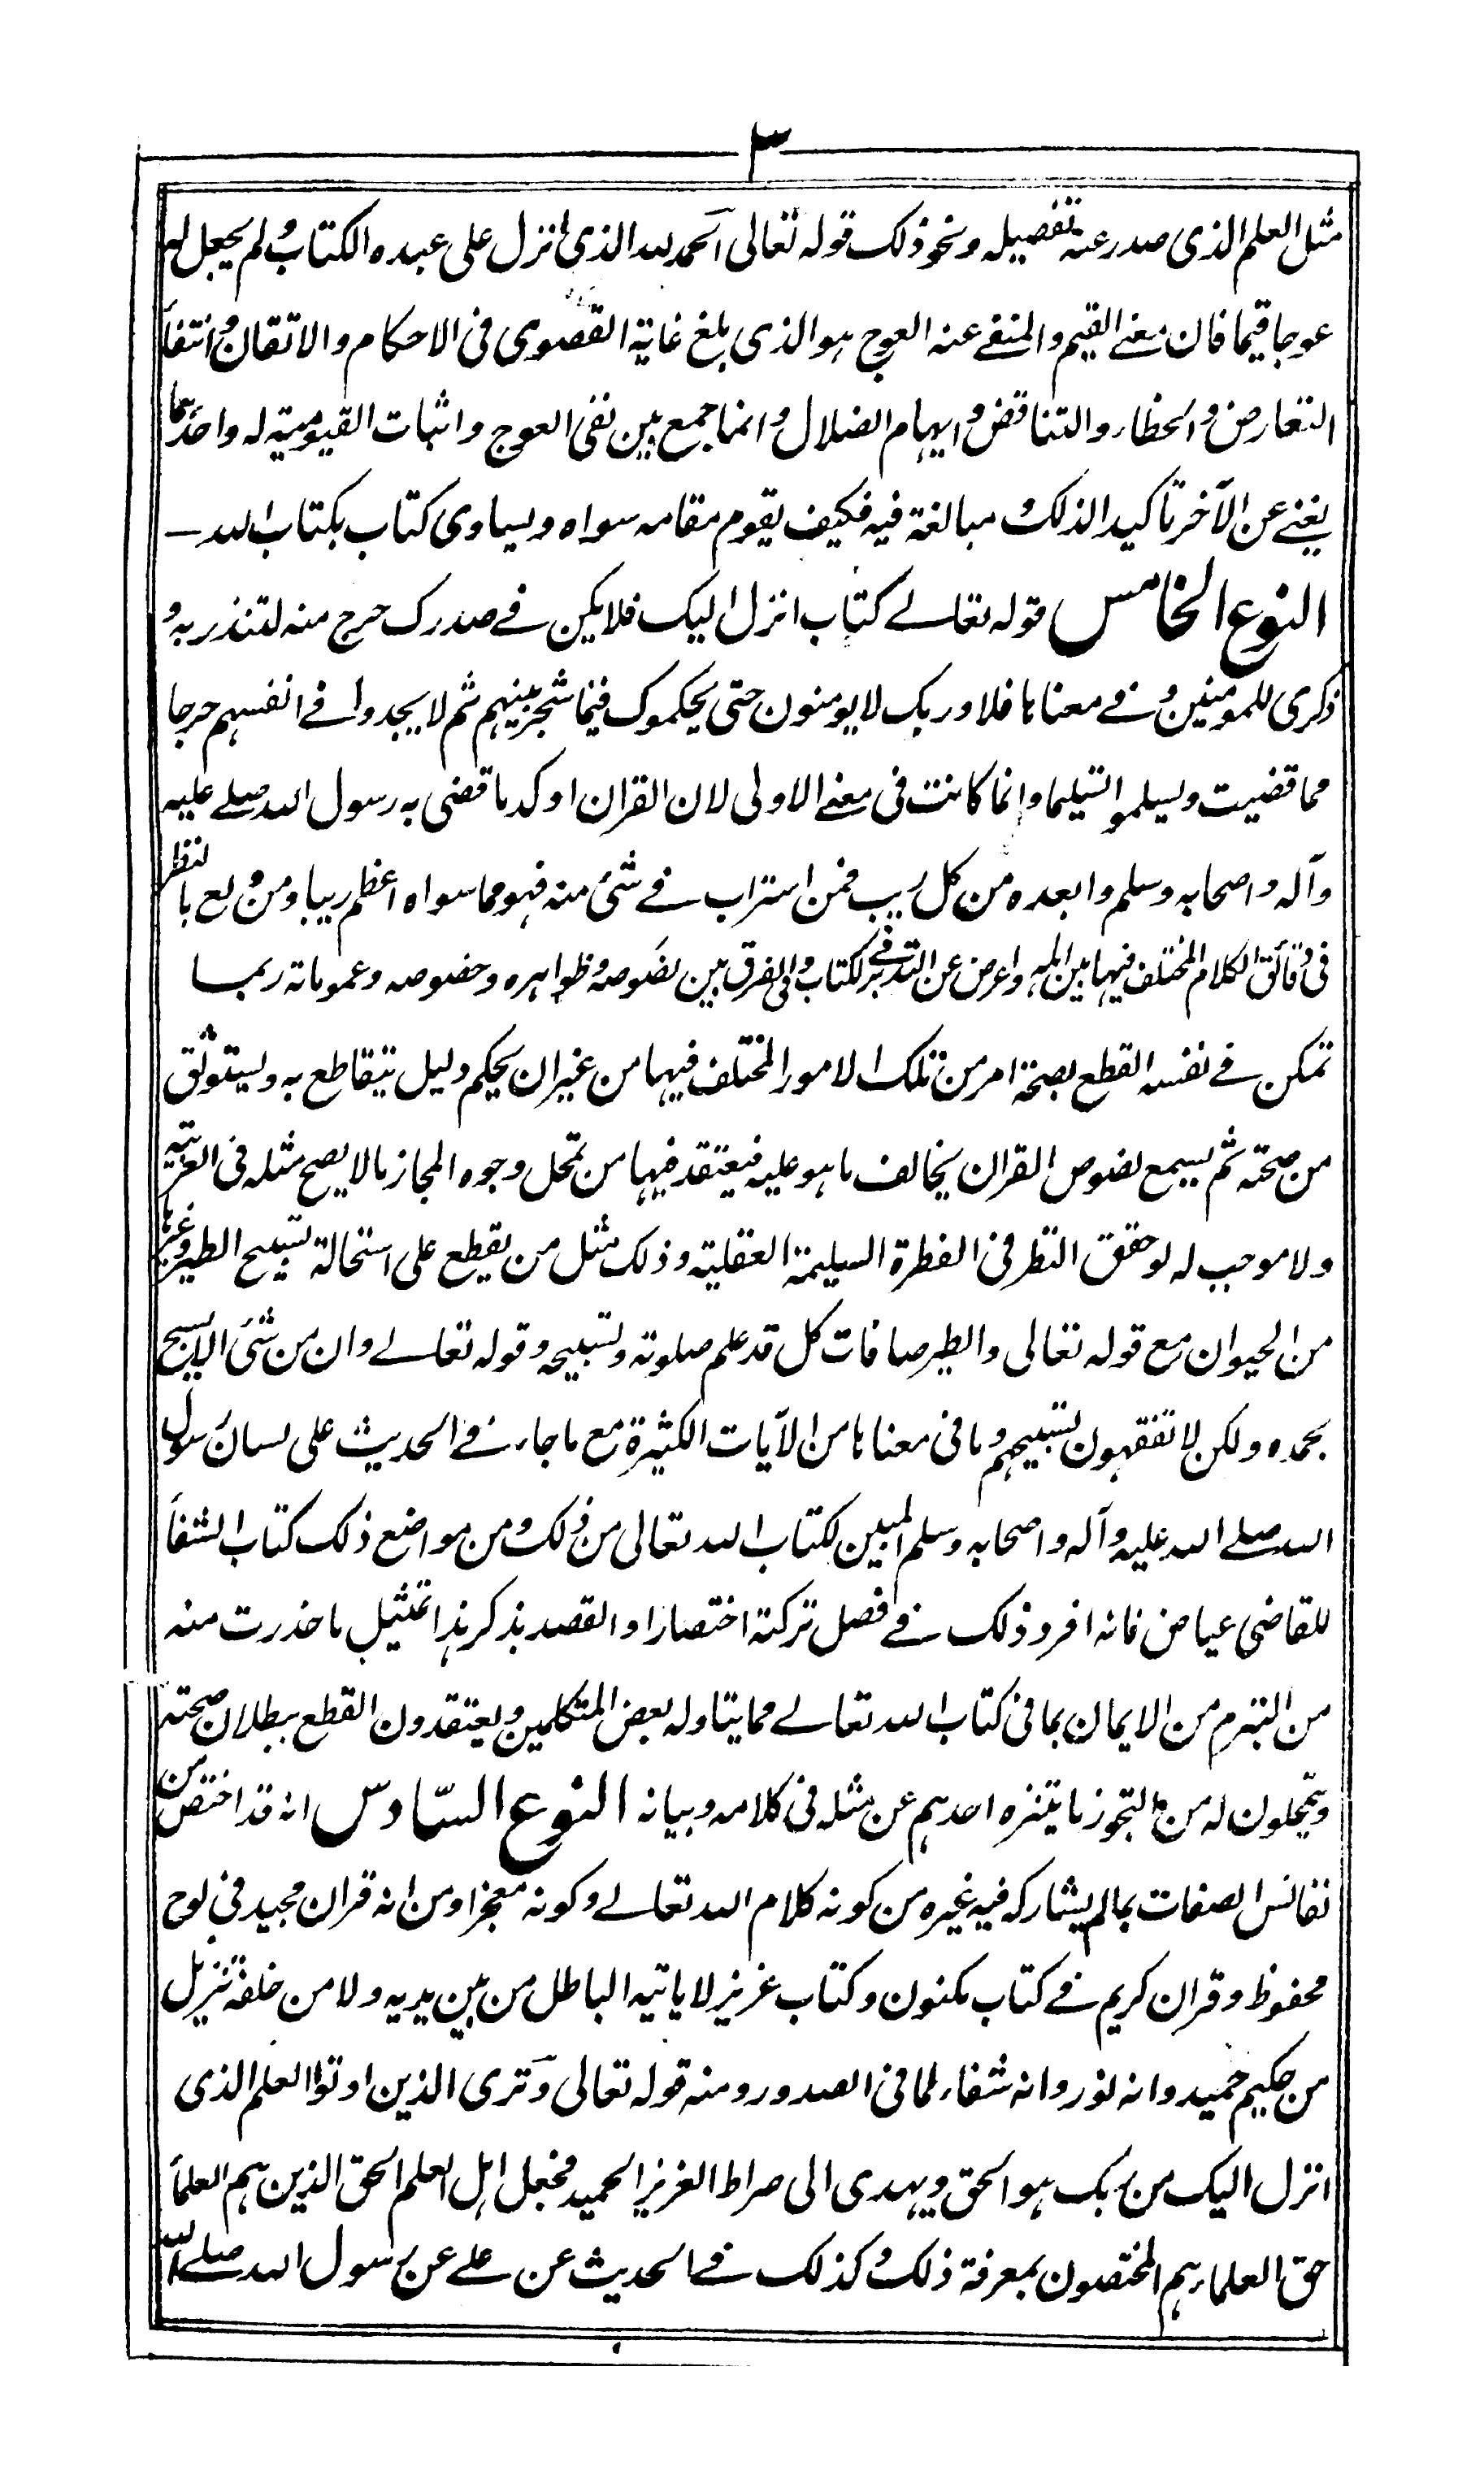 ٣
مثل العلم الذى صدر عنه تفصيله ونحو ذلك قوله تعالى الحمد لله الذى انزل على عبده الكتاب ولم يجعل له
عوجا قيما فان معنے القيم والمنفے عنه العوج هو الذى بلغ غاية القصوى فى الاحكام والاتقان وانتفاء
التعارض والخطاء والتناقض وايهام الضلال وانما جمع بين نفى العوج واثبات القيومية له واحدهما
يغنے عن الآخر تاكيدا لذلك مبالغة فيه فكيف يقوم مقامه سواه ويساوى كتاب بكتاب الله —
النوع الخامس قوله تعالے كتاب انزل اليك فلا يكن فے صدرك حرج منه لتنذر به و
ذكرى للمومنين وفے معناها فلا وربك لا يومنون حتى يحكموك فيما شجر بينهم ثم لا يجدوا فے انفسهم حرجا
مما قضيت ويسلموا تسليما وانما كانت فى معنے الاولى لان القران اوكد ما قضى به رسول الله صلے عليه
وآله واصحابه وسلم وابعده من كل ريب فمن استراب فے شئ منه فهو مما سواه اعظم ريبا ومن ولع بالنظر
فى دقائق الكلام المختلف فيها بين اهله واعرض عن التدبر فے الكتاب وفى الفرق بين نصوصه وظواهره وخصوصه وعموماته ربما
تمكن فے نفسه القطع بصحة امر من تلك الامور المختلف فيها من غير ان يحكم دليل يتقاطع به ويستوثق
من صحته ثم يسمع نصوص القران يخالف ما هو عليه فيعتقد فيها من تمحل وجوه المجاز ما لا يصح مثله فى العربية
ولا موجب له لو حقق النظر فى الفطرة السليمة العقلية وذلك مثل من يقطع على استحالة تسبيح الطير وغيرها
من الحيوان مع قوله تعالى والطير صافات كل قد علم صلوته وتسبيحه وقوله تعالے وان من شئ الا يسبح
بحمده ولكن لا تفقهون تسبيحهم وما فى معناها من الآيات الكثيرة مع ما جاء فے الحديث على لسان رسول
الله صلے الله عليه وآله واصحابه وسلم المبين لكتاب الله تعالى من ذلك ومن مواضع ذلك كتاب الشفاء
للقاضى عياض فانه افرد ذلك فے فصل تركته اختصارا والقصد بذكر هذا تمثيل ما حذرت منه
من التبرم من الايمان بما فى كتاب الله تعالے مما يتاوله بعض المتكلمين ويعتقدون القطع ببطلان صحته
ويتمحلون له من التجوز ما يتنزه احدهم عن مثله فى كلامه وبيانه النوع السّادس انه قد اختص من
نفائس الصفات بما لم يشاركه فيه غيره من كونه كلام الله تعالے وكونه معجزا ومن انه قران مجيد فى لوح
محفوظ وقران كريم فے كتاب مكنون وكتاب عزيز لا ياتيه الباطل من بين يديه ولا من خلفه تنزيل
من حكيم حميد وانه نور وانه شفاء لما فى الصدور ومنه قوله تعالى وترى الذين اوتوا العلم الذى
انزل اليك من ربك هو الحق ويهدى الى صراط العزيز الحميد فجعل اهل العلم الحق الذين هم العلماء
حق العلماء هم المختصون بمعرفة ذلك وكذلك فے الحديث عن علے عن رسول الله صلے الله